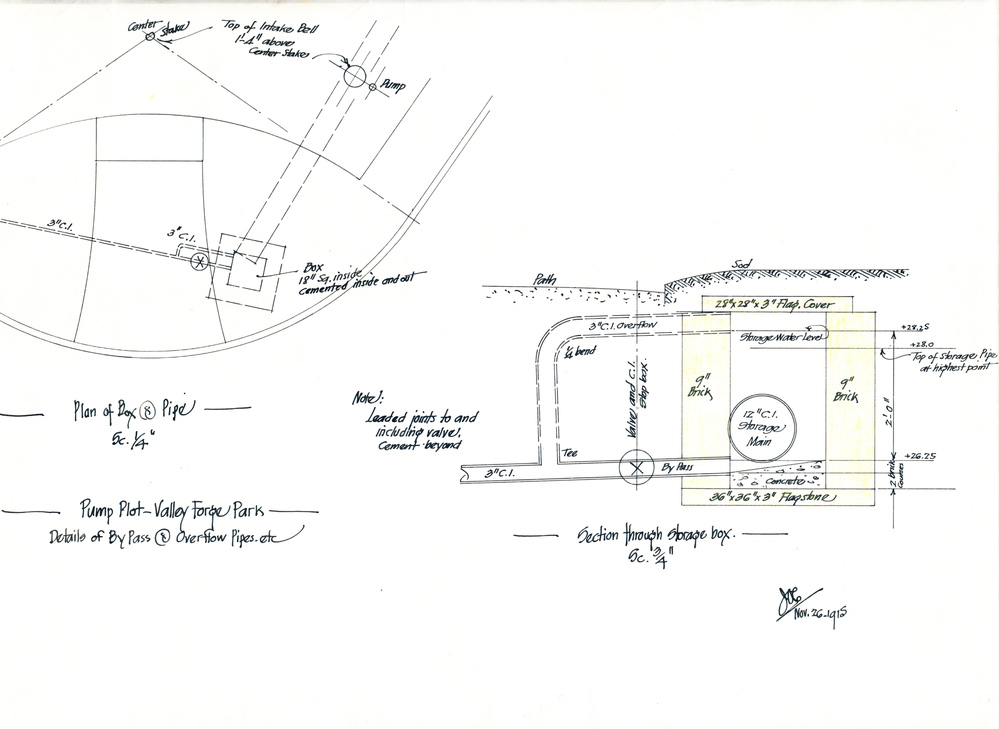 Center
Stake
Top of Intake Bell
1'-4" above
Center Stake
Pump
3" C.I.
3" C.I.
Box
18" Sq. inside
cemented inside and out
Plan of Box & Pipe
Sc. 1/4"
Pump Plot-Valley Forge Park
Details of By Pass & Overflow Pipes. etc
Note:
Leaded joints to and
including valve,
Cement beyond
Path
Sod
28"x28"x3" Flag. Cover
3" C.I. Overflow
1/4 bend
Valve and C.I.
Stop box.
Storage Water Level
+28.25
+28.0
Top of Storage Pipe
at highest point
9"
Brick
9"
Brick
12" C.I.
Storage
Main
2'-0"
Tee
3" C.I.
By Pass
+26.25
2 brick
Courses
Concrete
36"x36"x3" Flagstone
Section through Storage box.
Sc. 3/4"
Nov. 26-1915